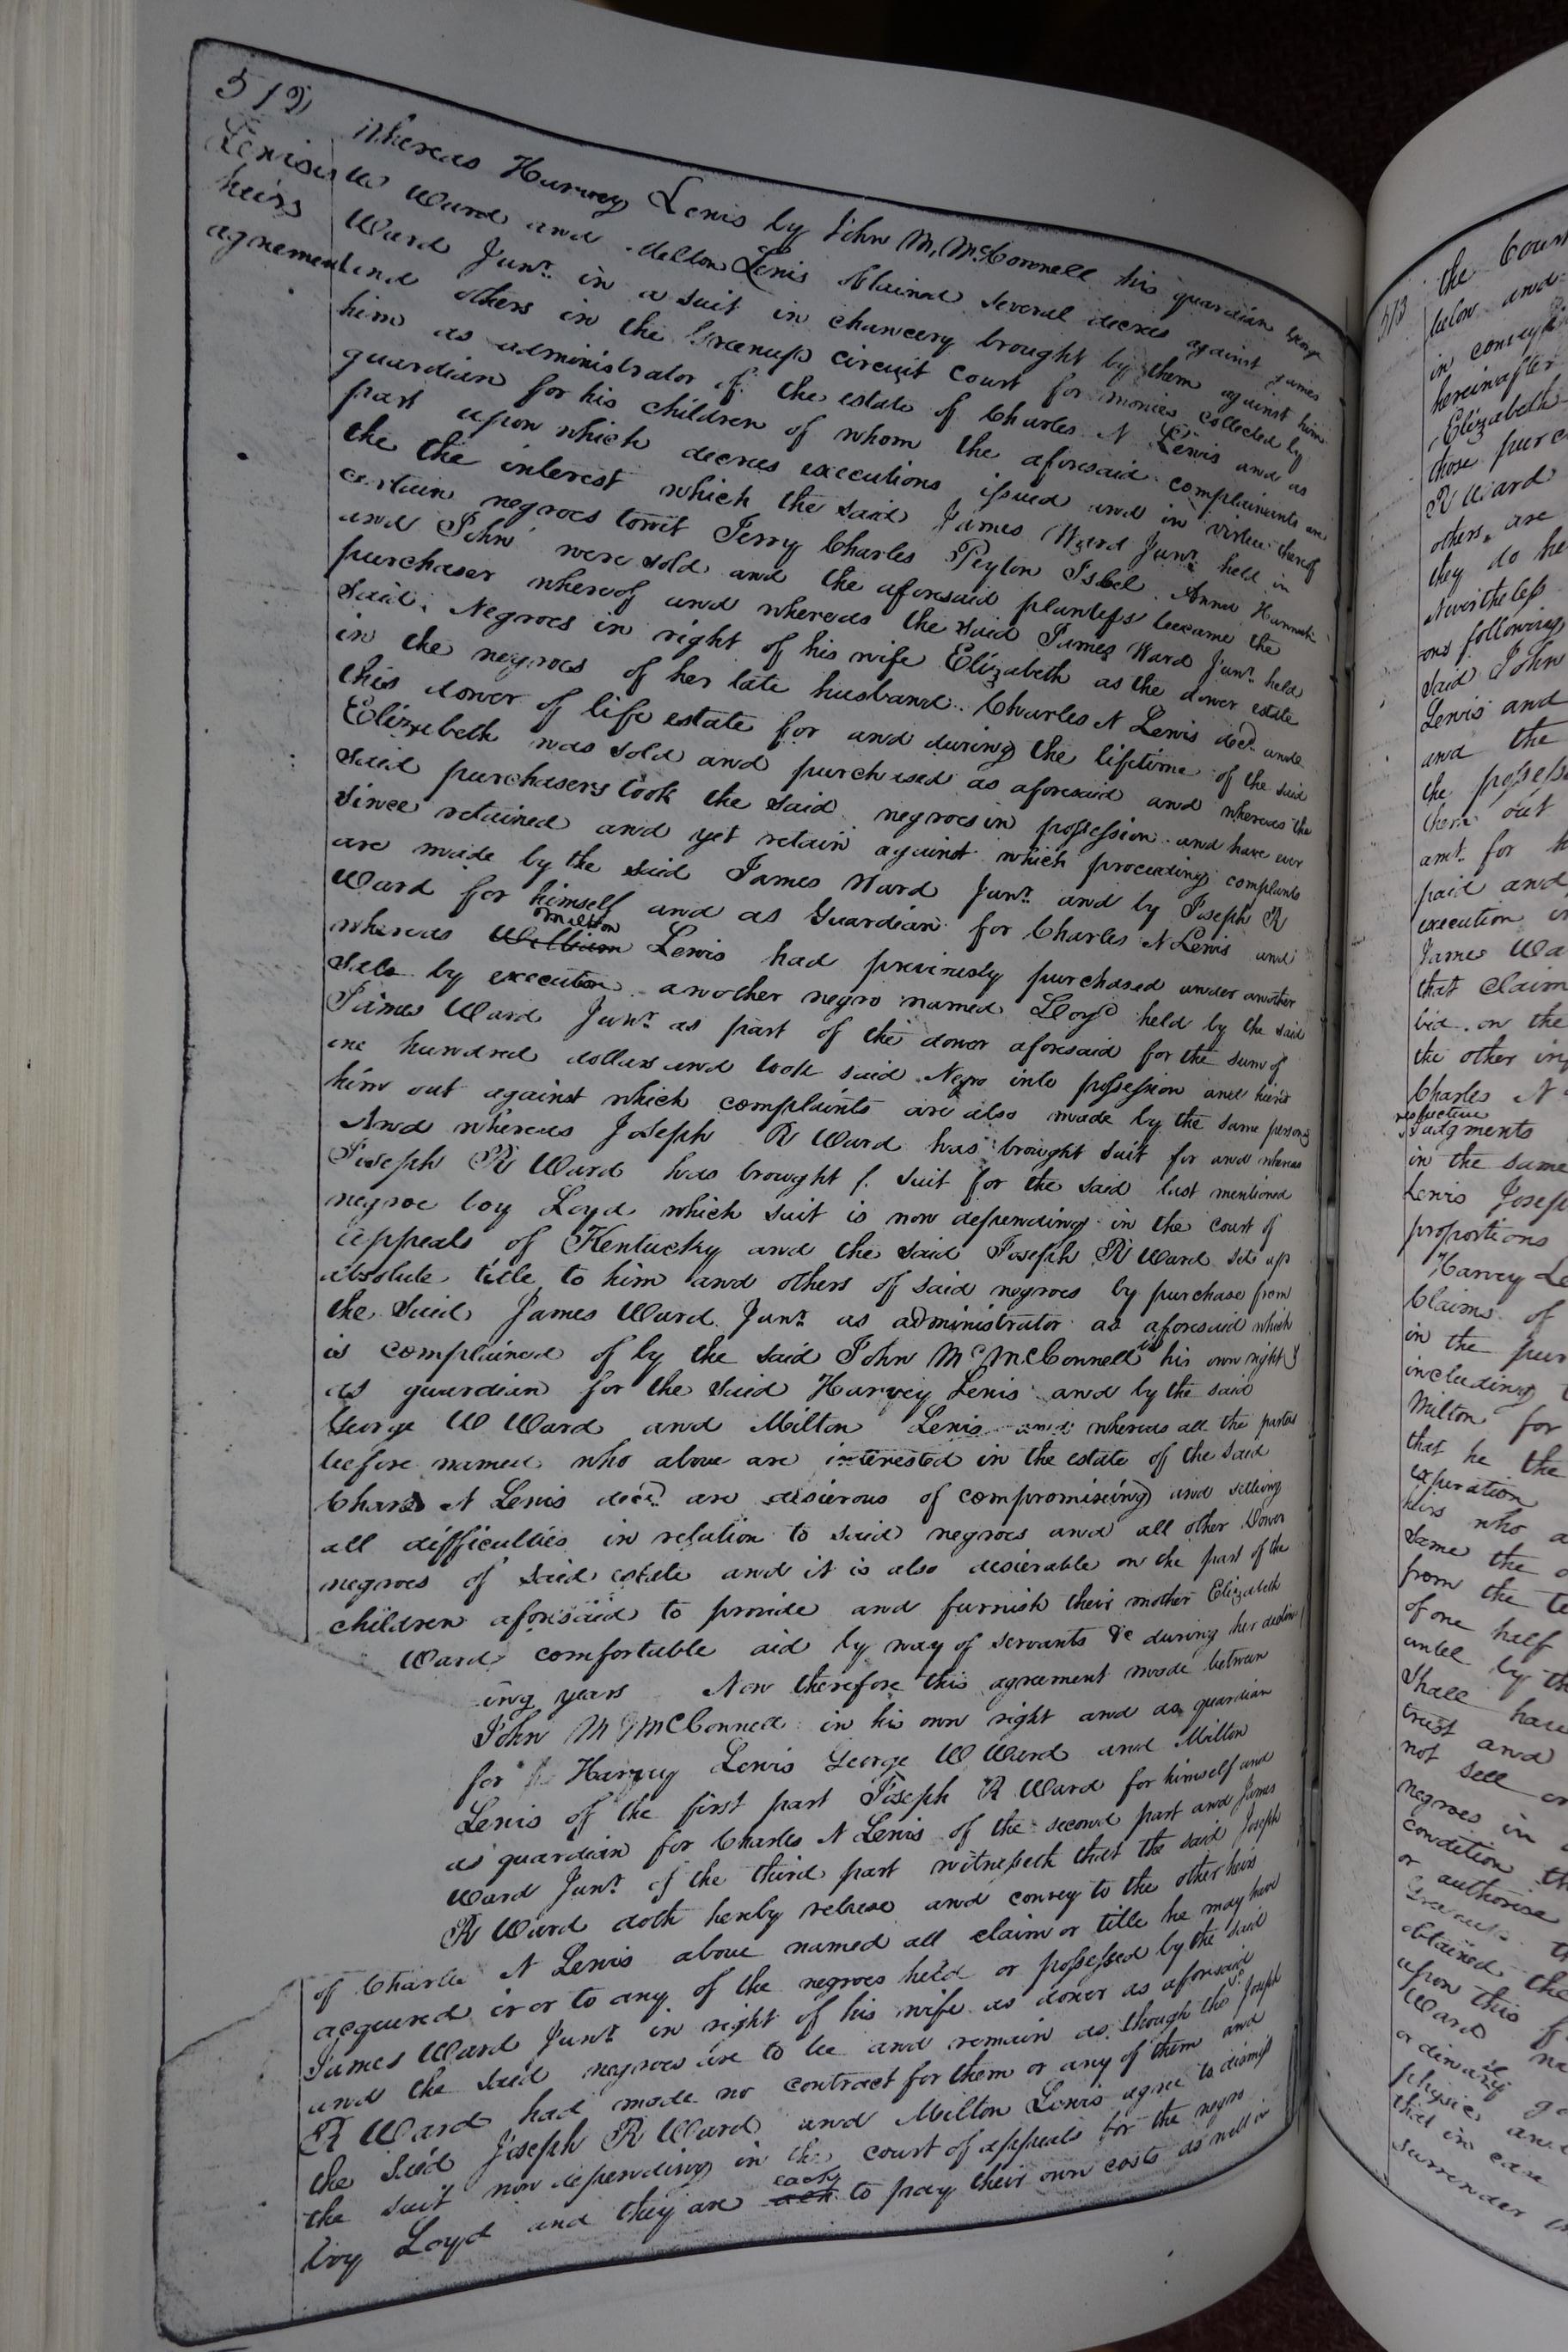 512
Lewises
heirs
agrement
Whereas Harvey Lewis by John M, McConnell his guardian George
W Ward and Milton Lewis obtained several decrees against James
Ward Junr. in a suit in chancery brought by them against him
and others in the Greenup circuit court for monies collected by
him as administrator of the estate of Charles N Lewis and as
guardian for his children of whom the aforesaid complainants are
part upon which decrees executions issued and in virtue thereof
the the interest which the said James Ward Junr. held in
certain negroes towit Terry Charles Peyton Isbel Anna Hannah
and John were sold and the aforesaid plantiffs became the
purchaser whereof and whereas the said James Ward Junr. held
said Negroes in right of his wife Elizabeth as the dower estate
in the negroes of her late husband Charles N Lewis decd. and
this dower of life estate for and during the liftime of the said
Elizebeth was sold and purchased as aforesaid and whereas the
said purchasers took the said negroes in possession and have ever
since retained and yet retain against which proceeding complaints
are made by the said James Ward Junr. and by Joseph R
Ward for himself and as Guardian for Charles N Lewis and
whereas William Milton Lewis had previously purchased under another
sale by execution another negro named Loyd held by the said
James Ward Junr. as part of the dower aforesaid for the sum of
one hundred dollars and took said Negro into possession and hired
him out against which complaints are also made by the same persons
And whereas Joseph R Ward has brought suit for and whereas
Joseph R Ward has brought suit for the said last mentioned
negroe boy Loyd which suit is now depending in the court of
Appeals of Kentucky and the said Joseph R Ward sets up
absolute title to him and others of said negroes by purchase from
the said James Ward Junr. as administrator as aforesaid which
is complained of by the said John Mc McConnell in his own right &
as guardian for the said Harvey Lewis and by the said
George W Ward and Milton Lewis and whereas all the parties
before named who above are interested in the estate of the said
Chars N Lewis decd. are desierous of compromiseing and settling
all difficulties in relation to said negroes and all other Dower
negroes of said estate and it is also desierable on the part of the
children aforesaid to provide and furnish their mother Elizabeth
Ward comfortable aid by way of servants &c during her declin
ing years Now therefore this agreement made between
John M McConnell in his own right and as guardian
for Harvey Lewis George W Ward and Milton
Lewis of the first part Joseph R Ward for himself and
as guardian for Charles N Lewis of the second part and James
Ward Junr. of the third part witnesseth that the said Joseph
R Ward doth hereby release and convey to the other heirs
of Charles N Lewis above named all claim or title he may have
acquired in or to any of the negroes held or possessed by the said
James Ward Junr. in right of his wife as dower as aforesaid
and the said negroes are to be and remain as though the sd. Joseph
R Ward had made no contract for them or any of them and
the said Joseph R Ward and Milton Lewis agree to dismiss
the suit now depending in the court of appeals for the negro
boy Loyd and they are each to pay their own costs as well in
513
the Court
below and
in conveyin
hereinafter
Elizabeth
those purc
R Ward
others, are
they do he
Nevertheless
ons following
said John
Lewis and
and the
the possess
them out
amt. for h
paid and
execution in
James Wa
that claim
bid on the
the other in
Charles N
respective
Judgments
in the same
Lewis Josep
proportions
Harvey Le
Claims of
in the pur
including t
Milton for
that he the
expiration
hirs who a
same the
from the te
of one half
untel by th
Shall hav
trust and
not sell or
negroes in
condition th
or authorise
obtained the
upon this
Ward na
ordinary
physic and
that in case
surrender